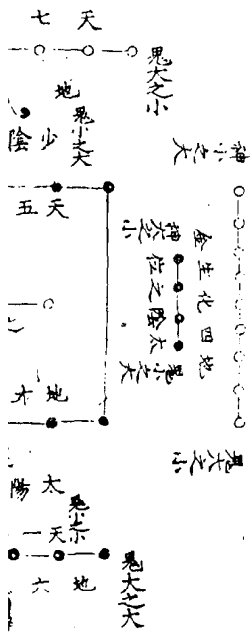 天七
鬼大之小
地
鬼小之大
少陰
神小之大
天五
神大之小
地四化生金
太陰之位
鬼小之大
地
鬼大之小
太陽
鬼小之小
天一
地六
鬼大之大